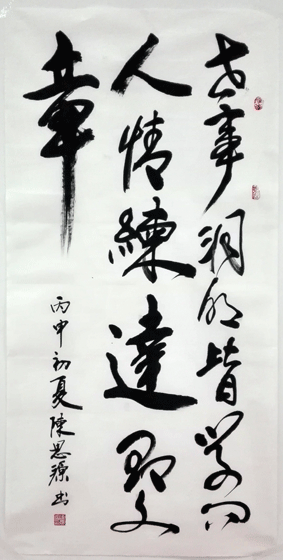 世事洞明皆学问
人情練達即文
章
丙申初夏陳思源书